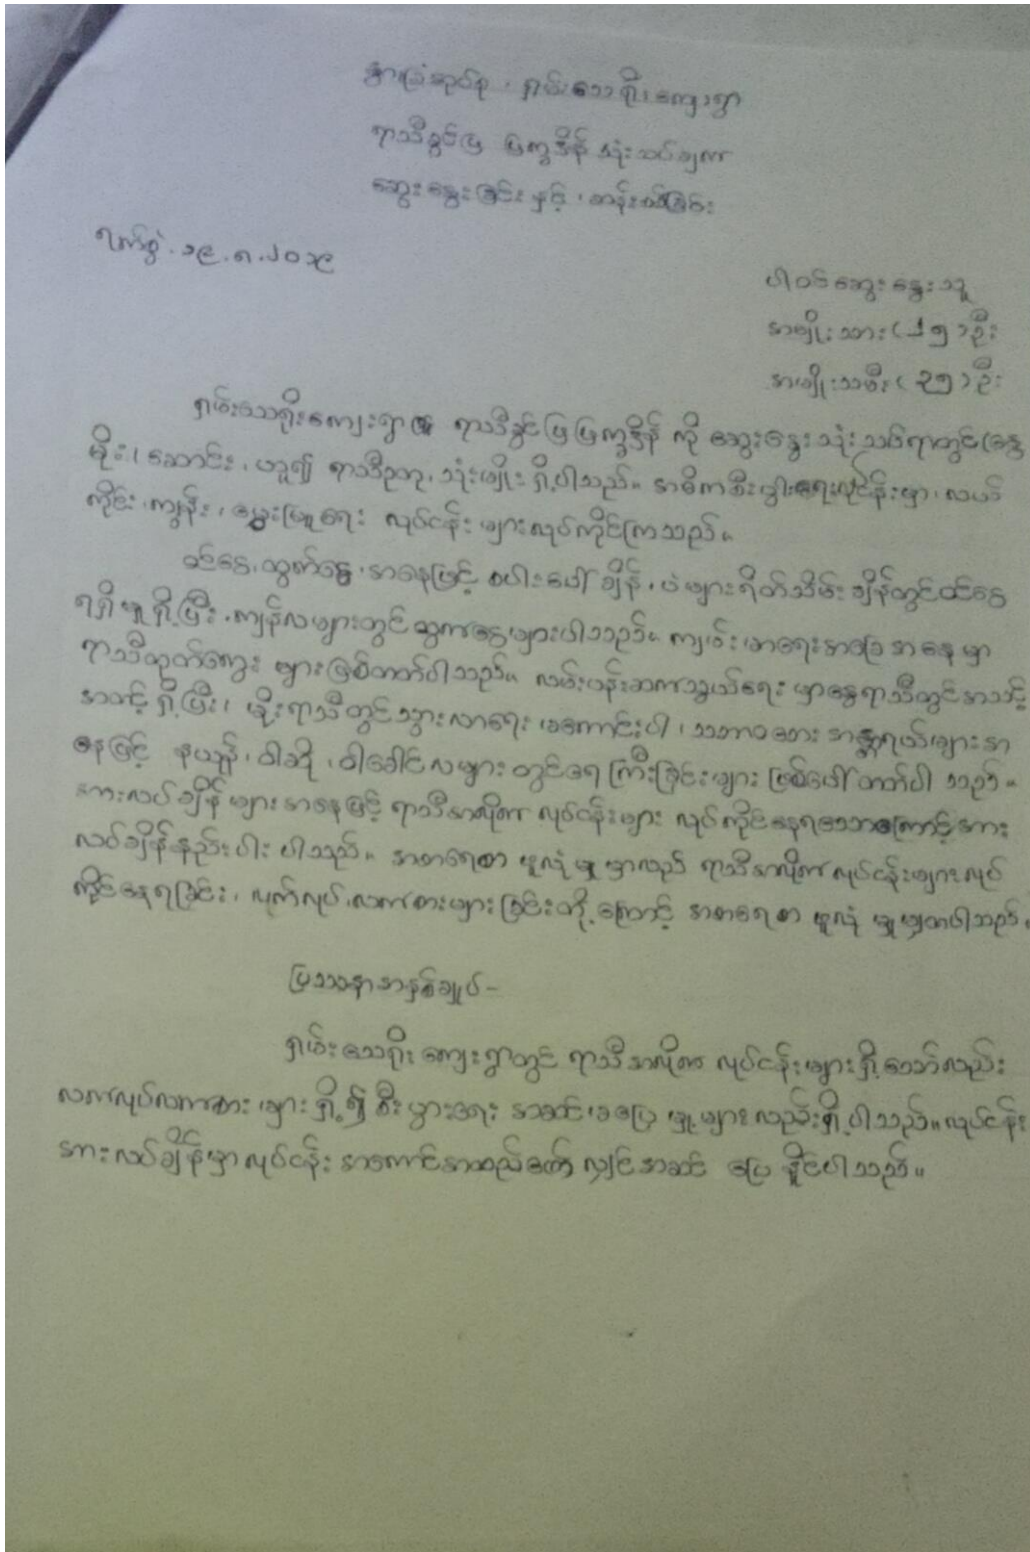 နွားခြံအုပ်စု၊ ရှမ်းသေရိုးကျေးရွာ
ရာသီခွင်ပြ ပြက္ခဒိန် သုံးသပ်ချက်
ဆွေးနွေးခြင်း နှင့်၊ ဆန်းစစ်ခြင်း
ရက်စွဲ.၁၉.၈.၂၀၁၉
ပါဝင်ဆွေးနွေးသူ
အမျိုးသား(၂၅)ဦး
အမျိုးသမီး(၃၅)ဦး
ရှမ်းသေရိုးကျေးရွာ၏ ရာသီခွင်ပြပြက္ခဒိန် ကို ဆွေးနွေးသုံးသပ်ရာတွင်(နွေ
မိုး၊ ဆောင်း၊ ဟူ၍ ရာသီဥတု၊ သုံးမျိုး ရှိပါသည်။ အဓိကစီးပွါးရေးလုပ်ငန်းမှာ၊ လယ်
ကိုင်း၊ ကျွန်း၊ မွေးမြူရေး လုပ်ငန်းများလုပ်ကိုင်ကြသည်။
ဝင်ငွေ၊ ထွက်ငွေ၊ အနေဖြင့် စပါးပေါ်ချိန်၊ ပဲများရိတ်သိမ်းချိန်တွင်ဝင်ငွေ
ရရှိမှုရှိပြီး၊ ကျန်လများတွင်ထွက်ငွေများပါသည်။ ကျမ်းမာရေးအခြေအနေမှာ
ရာသီတုတ်ကွေး များဖြစ်တတ်ပါသည်။ လမ်းပန်းဆက်သွယ်ရေး မှာနွေရာသီတွင်အသင့်
အတင့် ရှိပြီး၊ မိုးရာသီတွင်သွားလာရေး မကောင်းပါ၊ သဘာဝဘေး အန္တရာယ်များအ
နေဖြင့် နယုန်၊ ဝါဆို၊ ဝါခေါင်လများတွင်ရေကြီးခြင်းများ ဖြစ်ပေါ်တတ်ပါသည်။
အားလပ်ချိန်များအနေဖြင့် ရာသီအလိုက် လုပ်ငန်းများ လုပ်ကိုင်နေရသောကြောင့်အား
လပ်ချိန်နည်းပါးပါသည်။ အစားရေစာ ဖူလုံမှုမှာလည် ရာသီအလိုက်လုပ်ငန်းများလုပ်
ကိုင်နေရခြင်း၊ လုက်လုပ်လက်စားများခြင်းတို့ကြောင့် အစရေစာ ဖူလုံမှုမျှတပါသည်။
ပြဿနာအနှစ်ချုပ်-
ရှမ်းသေရိုးကျေးရွာတွင် ရာသီအလိုက် လုပ်ငန်းများရှိသော်လည်း
လက်လုပ်လက်စားများရှိ၍ စီးပွားရေး အဆင်မပြေမှုများလည်းရှိပါသည်။ လုပ်ငန်း
အားလပ်ချိန်မှာလုပ်ငန်း အကောင်အထည်ဖော်လျှင်အဆင် ပြေနိူင်ပါသည်။